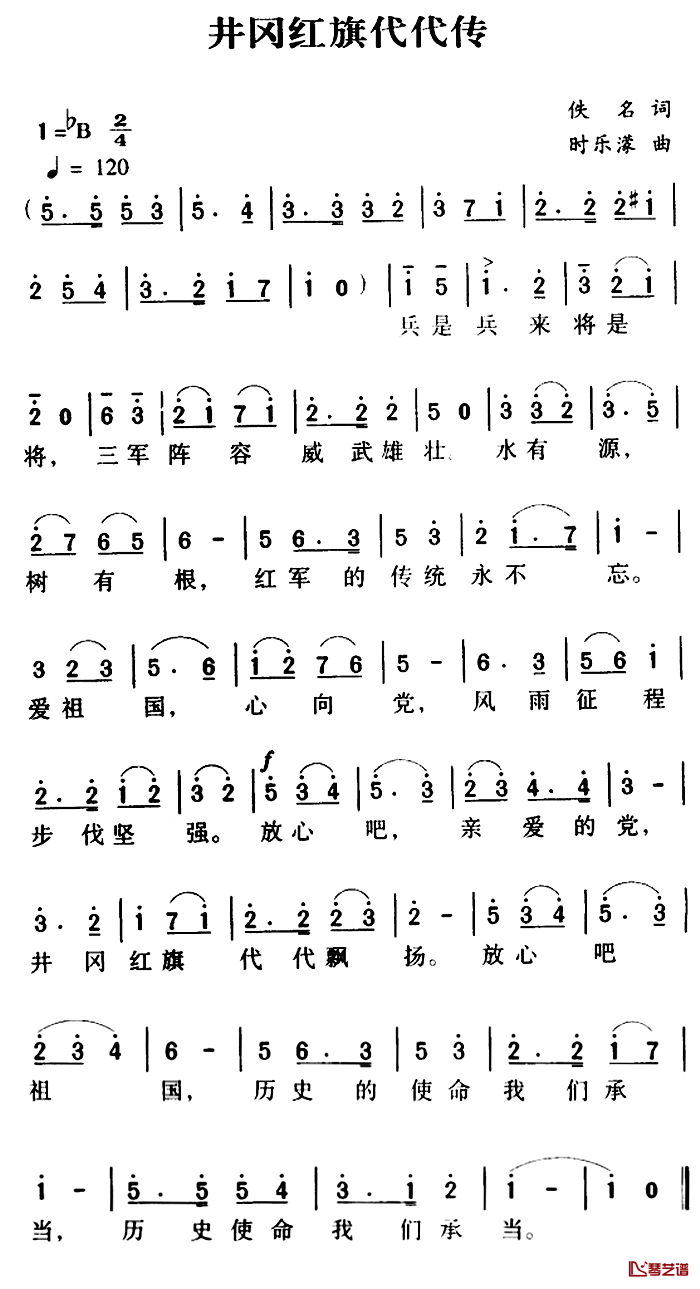 井冈红旗代代传
1=♭B 2/4
佚 名 词
时乐濛 曲
♩ = 120
( 5. 5 5 3 | 5. 4 | 3. 3 3 2 | 3 7 1 | 2. 2 2 #1 |
2 5 4 | 3. 2 1 7 | 1 0 ) | 1 5 | 1. 2 | 3 2 1 |
兵是兵 来将是
2 0 | 6 3 | 2 1 7 1 | 2. 2 2 | 5 0 | 3 3 2 | 3. 5 |
将, 三军阵 容 威 武雄壮、 水有 源,
2 7 6 5 | 6 - | 5 6. 3 | 5 3 | 2 1. 7 | 1 - |
树 有 根, 红军 的 传统 永不 忘。
3 2 3 | 5. 6 | 1 2 7 6 | 5 - | 6. 3 | 5 6 1 |
爱祖 国, 心 向 党, 风 雨征 程
2. 2 1 2 | 3 2 | f 5 3 4 | 5. 3 | 2 3 4. 4 | 3 - |
步 伐坚 强。 放心 吧, 亲 爱 的 党,
3. 2 | 1 7 1 | 2. 2 2 3 | 2 - | 5 3 4 | 5. 3 |
井 冈 红旗 代 代飘 扬。 放心 吧
2 3 4 | 6 - | 5 6. 3 | 5 3 | 2. 2 1 7 |
祖 国, 历 史 的 使命 我 们 承
1 - | 5. 5 5 4 | 3. 1 2 | 1 - | 1 0 ‖
当, 历 史使命 我 们承 当。
琴艺谱